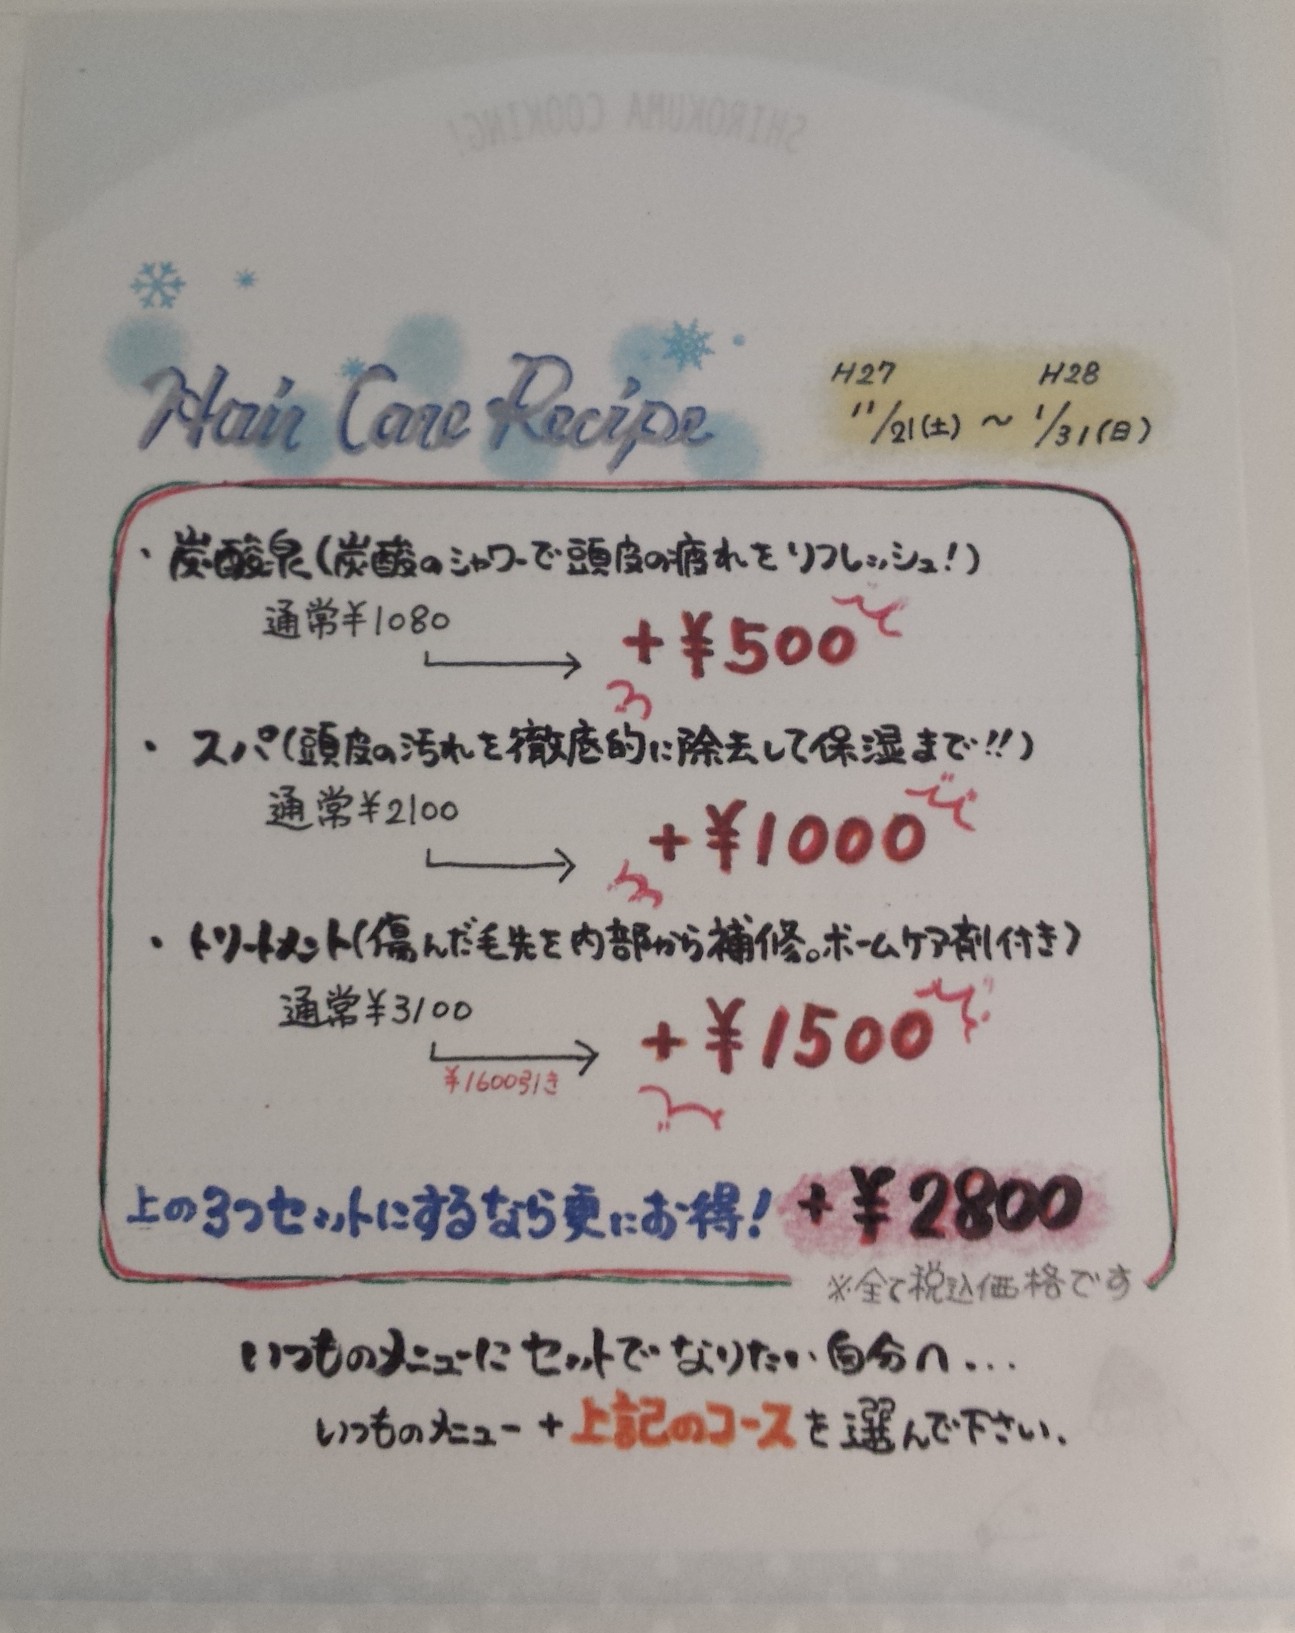 SHIROKUMA COOKING!
Hair Care Recipe
H27 H28
11/21(土) ～ 1/31(日)
・炭酸泉(炭酸のシャワーで頭皮の疲れをリフレッシュ!)
通常¥1080
+¥500
・スパ(頭皮の汚れを徹底的に除去して保湿まで!!)
通常¥2100
+¥1000
・トリートメント(傷んだ毛先を内部から補修。ホームケア剤付き)
通常¥3100
¥1600引き
+¥1500
上の3つセットにするなら更にお得! +¥2800
※全て税込価格です
いつものメニューにセットでなりたい自分へ...
いつものメニュー+上記のコースを選んで下さい.